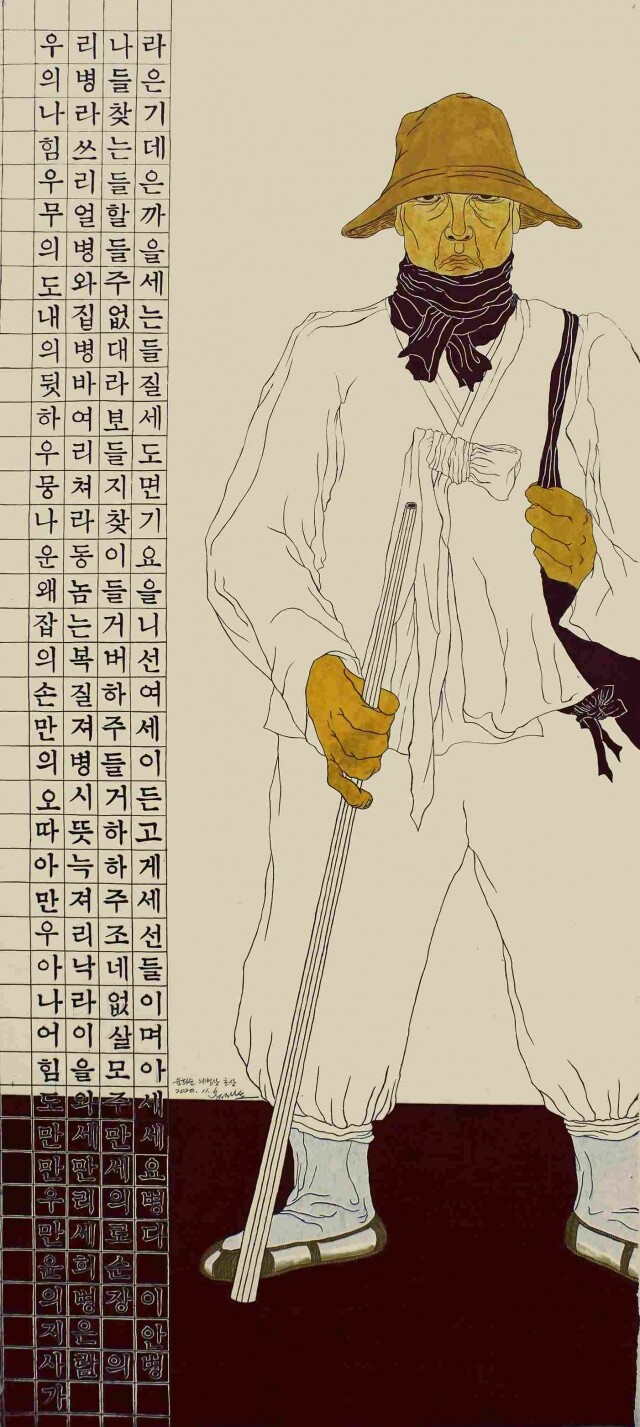 우리나라
의병들은
나라찾기
힘쓰는데
우리들은
무얼할까
의병들을
도와주세
내집없는
의병대들
뒷바라질
하여보세
우리들도
뭉쳐지면
나라찾기
운동이요
왜놈들을
잡는거니
의복버선
손질하여
만져주세
의병들이
오시거든
따뜻하고
아늑하게
만져주세
우리조선
아낙네들
나라없이
어이살며
힘을모아
도와주세
만세만세
만만세요
우리의병
만세로다
윤희순
의병장이
지은 안
사람의병
가
윤희순 의병장 초상
2020. 11.